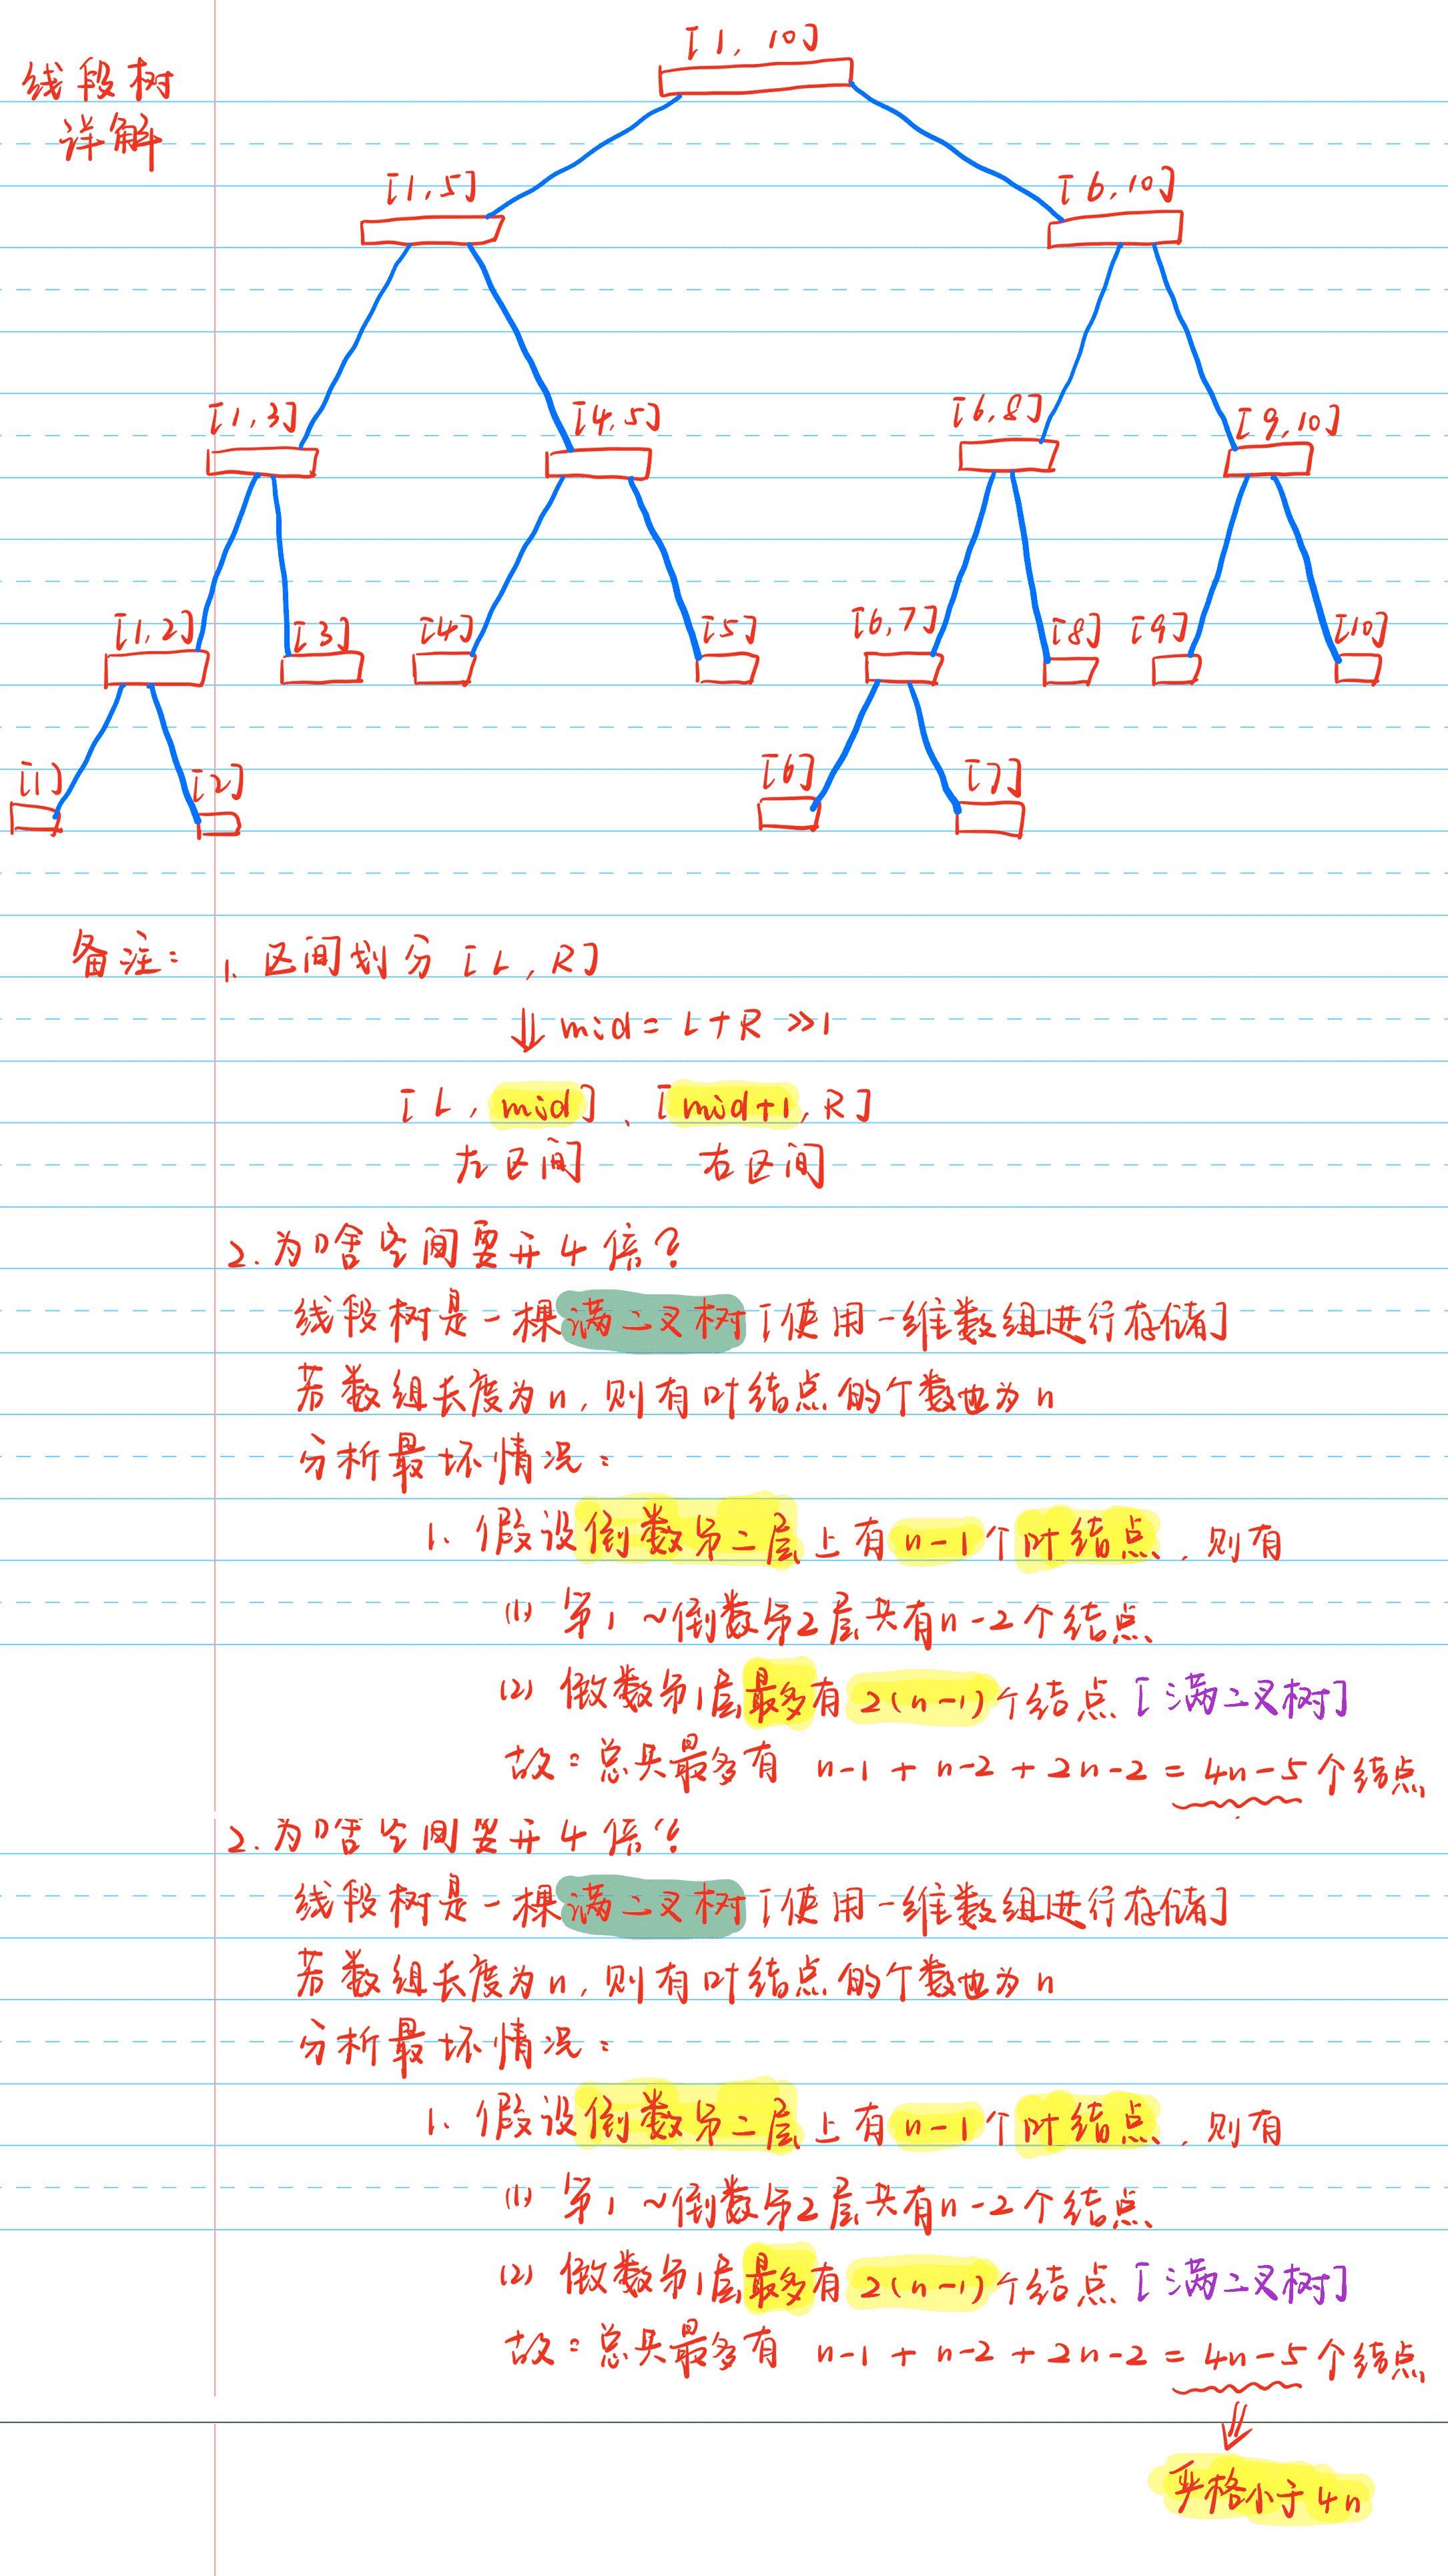 [1, 10]
线段树
详解
[1,5] [6,10]
[1,3] [4,5] [6,8] [9,10]
[1,2] [3] [4] [5] [6,7] [8] [9] [10]
[1] [2] [6] [7]
备注: 1. 区间划分 [L, R]
⇓ mid = L+R >>1
[L, mid]、[mid+1, R]
左区间 右区间
2. 为啥空间要开4倍?
线段树是一棵满二叉树[使用一维数组进行存储]
若数组长度为n, 则有叶结点的个数也为n
分析最坏情况:
1. 假设倒数第二层上有n-1个叶结点, 则有
(1) 第1~倒数第2层共有n-2个结点
(2) 做数第1层最多有2(n-1)个结点[满二叉树]
故: 总共最多有 n-1 + n-2 + 2n-2 = 4n-5个结点
2. 为啥空间要开4倍?
线段树是一棵满二叉树[使用一维数组进行存储]
若数组长度为n, 则有叶结点的个数也为n
分析最坏情况:
1. 假设倒数第二层上有n-1个叶结点, 则有
(1) 第1~倒数第2层共有n-2个结点
(2) 做数第1层最多有2(n-1)个结点[满二叉树]
故: 总共最多有 n-1 + n-2 + 2n-2 = 4n-5个结点
⇓
严格小于4n